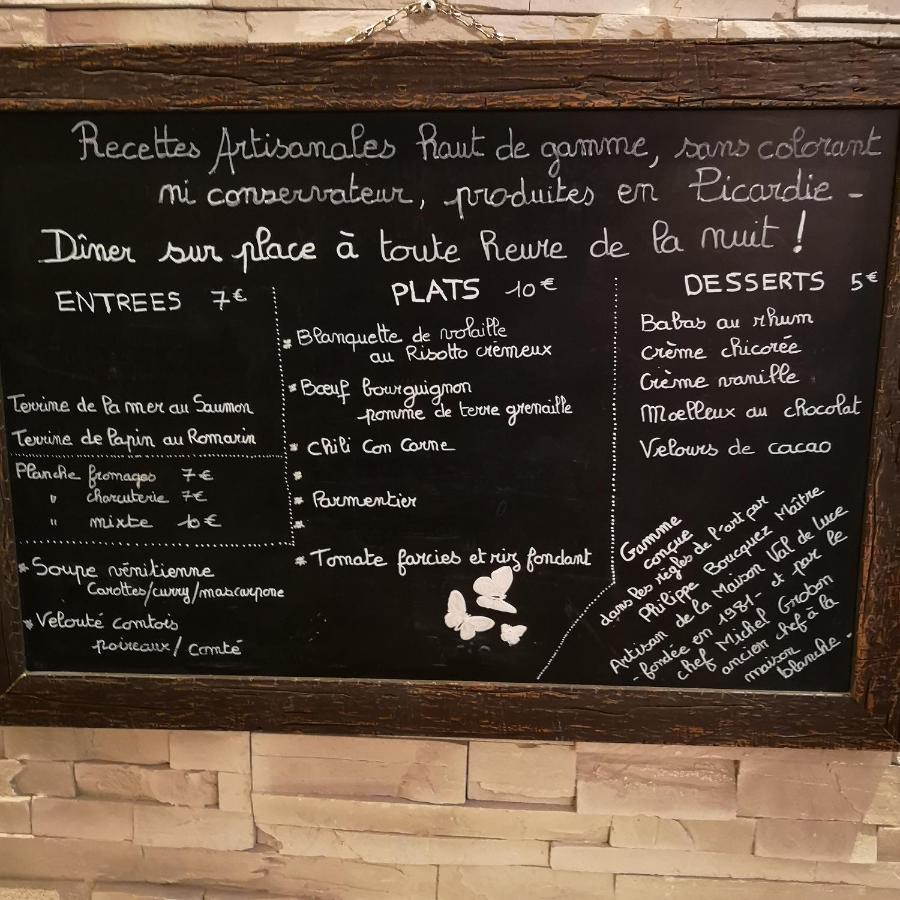 Recettes Artisanales haut de gamme, sans colorant
ni conservateur, produites en Picardie -
Dîner sur place à toute heure de la nuit !
ENTREES 7€
Terrine de la mer au Saumon
Terrine de lapin au Romarin
Planche fromages 7€
" charcuterie 7€
" mixte 10€
* Soupe vénitienne
Carottes/curry/mascarpone
* Velouté comtois
poireaux/Comté
PLATS 10€
* Blanquette de volaille
au Risotto crèmeux
* Bœuf bourguignon
pomme de terre grenaille
* Chili Con Carne
*
* Parmentier
*
* Tomate farcies et riz fondant
DESSERTS 5€
Babas au rhum
Crème chicorée
Crème vanille
Moelleux au chocolat
Velours de cacao
Gamme
conçue
dans les règles de l'art par
Philippe Boucquez Maître
Artisan de la Maison Val de Luce
- fondée en 1981 - et par le
chef Michel Grobon
ancien chef à la
maison
blanche -